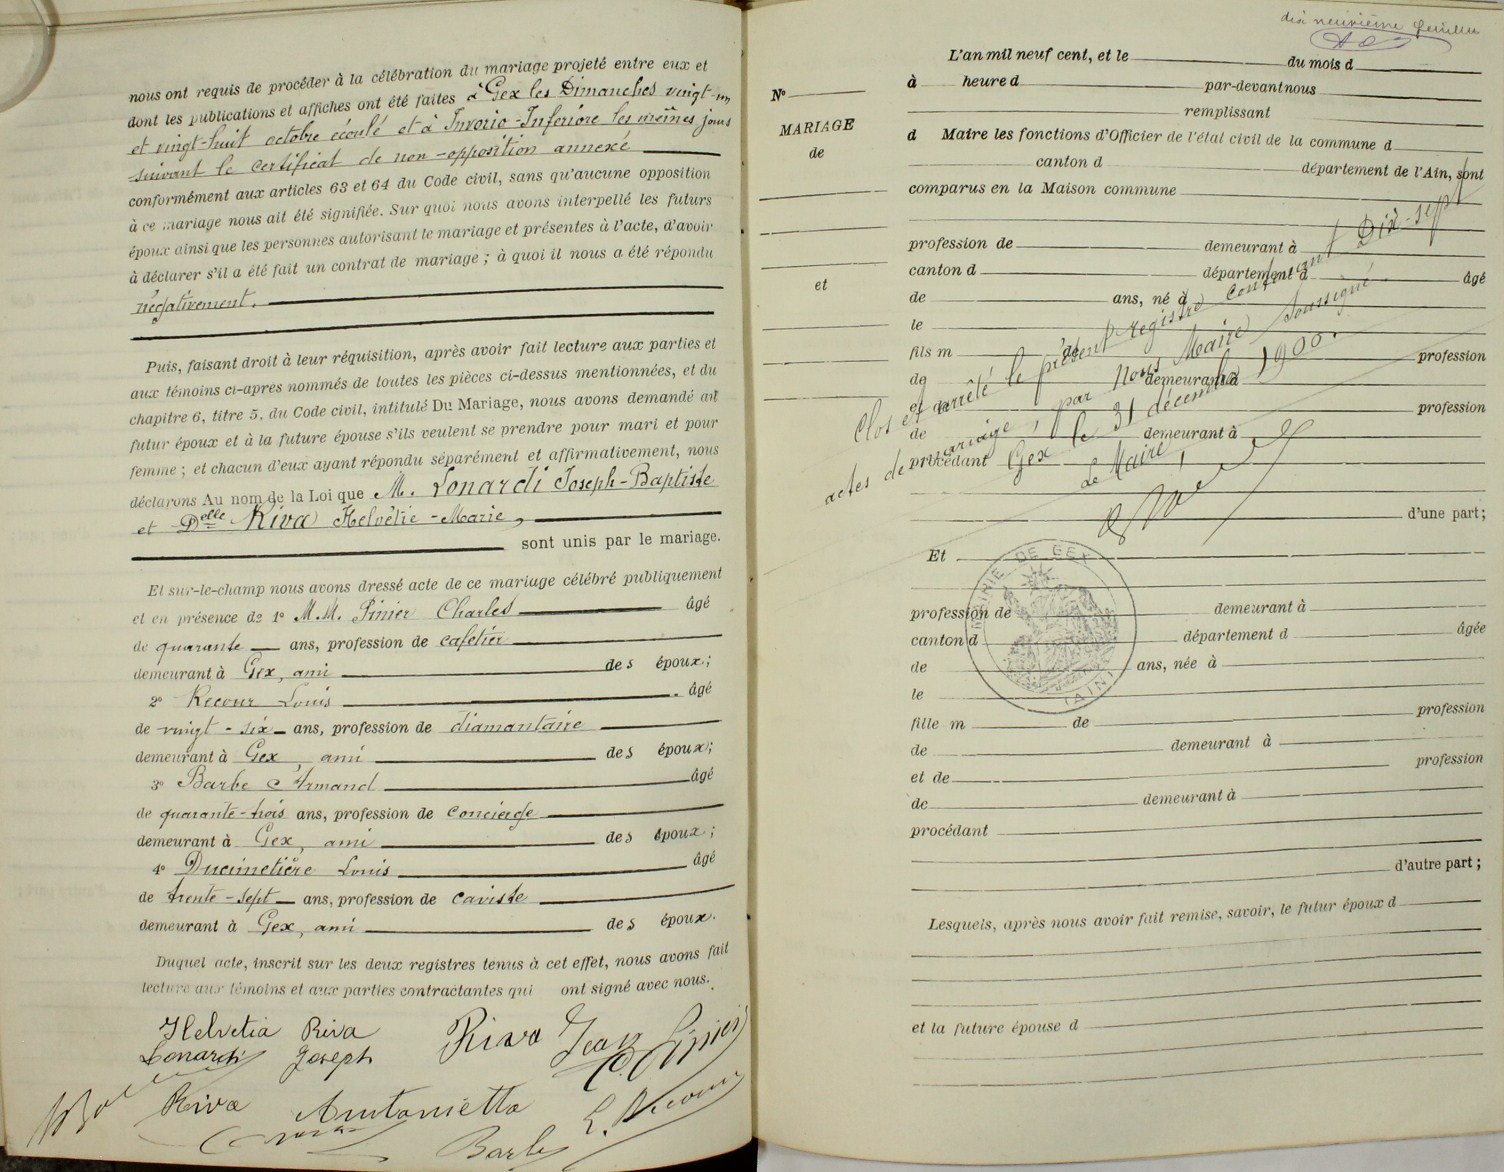 nous ont requis de procéder à la célébration du mariage projeté entre eux et
dont les publications et affiches ont été faites à Gex les Dimanches vingt-un
et vingt-huit octobre écoulé et à Invorio-Inferiore les mêmes jours
suivant le certificat de non-opposition annexé
conformément aux articles 63 et 64 du Code civil, sans qu'aucune opposition
à ce mariage nous ait été signifiée. Sur quoi nous avons interpellé les futurs
époux ainsi que les personnes autorisant le mariage et présentes à l'acte, d'avoir
à déclarer s'il a été fait un contrat de mariage ; à quoi il nous a été répondu
négativement.
Puis, faisant droit à leur réquisition, après avoir fait lecture aux parties et
aux témoins ci-apres nommés de toutes les pièces ci-dessus mentionnées, et du
chapitre 6, titre 5, du Code civil, intitulé Du Mariage, nous avons demandé au
futur époux et à la future épouse s'ils veulent se prendre pour mari et pour
femme ; et chacun d'eux ayant répondu séparément et affirmativement, nous
déclarons Au nom de la Loi que M. Lonardi Joseph-Baptiste
et Delle Riva Helvétie-Marie,
sont unis par le mariage.
Et sur-le-champ nous avons dressé acte de ce mariage célébré publiquement
et en présence de 1º M.M. Pinier Charles âgé
de quarante ans, profession de cafetier
demeurant à Gex, ami des époux;
2º Recour Louis âgé
de vingt-six ans, profession de diamantaire
demeurant à Gex, ami des époux;
3º Barbe Armand âgé
de quarante-trois ans, profession de concierge
demeurant à Gex, ami des époux;
4º Ducimetière Louis âgé
de trente-sept ans, profession de caviste
demeurant à Gex, ami des époux.
Duquel acte, inscrit sur les deux registres tenus à cet effet, nous avons fait
lecture aux témoins et aux parties contractantes qui ont signé avec nous.
Helvetia Riva Riva Jean C. Pinier
Lonardi Joseph
Riva Antonietta L. Recour
Barbe
dix neuvième feuillet
Nº
MARIAGE
de
et
L'an mil neuf cent, et le du mois d
à heure d par-devant nous
remplissant
d Maire les fonctions d'Officier de l'état civil de la commune d
canton d département de l'Ain, sont
comparus en la Maison commune
profession de demeurant à
canton d département d âgé
de ans, né à
le
fils m de profession
de demeurant à
et profession
de demeurant à
procédant
Clos et arrêté le présent registre contenant Dix-sept
actes de mariage, par nous Maire soussigné
Gex le 31 décembre 1900.
Le Maire,
d'une part;
MAIRIE DE GEX
(AIN)
Et
profession de demeurant à
canton d département d âgée
de ans, née à
le
fille m de profession
de demeurant à
et de profession
de demeurant à
procédant
d'autre part ;
Lesquels, après nous avoir fait remise, savoir, le futur époux d
et la future épouse d